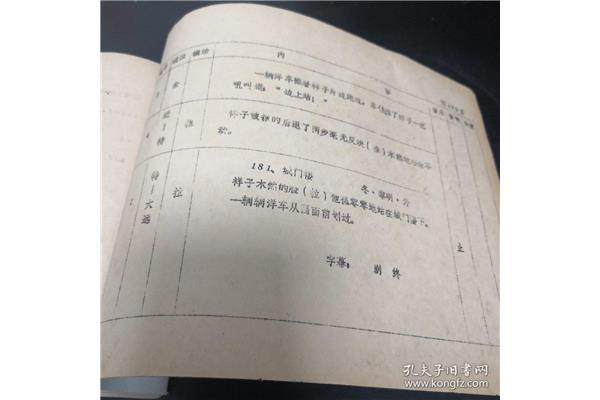 景位 镜法 内 容
全 一辆洋车擦着祥子身边跑过，车伕撞了祥子一把
吼叫道，“边上站！”
近—特 拉 祥子被撞的后退了两步毫无反映（拉）木然地站在不
动。
181、城门楼 冬·黎明·外
特—大远 拉 祥子木然的脸（拉）他孤零零地站在城门楼下。
一辆辆洋车从画面前划过。
止
字幕： 剧 终
孔夫子旧书网
www.kongfz.com